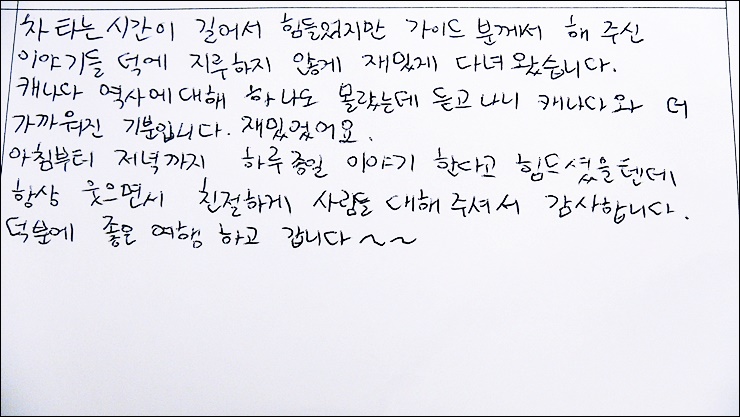 차 타는 시간이 길어서 힘들었지만 가이드 분께서 해 주신
이야기들 덕에 지루하지 않게 재밌게 다녀왔습니다.
캐나다 역사에 대해 하나도 몰랐는데 듣고 나니 캐나다와 더
가까워진 기분입니다. 재밌었어요.
아침부터 저녁까지 하루종일 이야기 한다고 힘드셨을텐데
항상 웃으면서 친절하게 사람들 대해 주셔서 감사합니다.
덕분에 좋은 여행 하고 갑니다~~